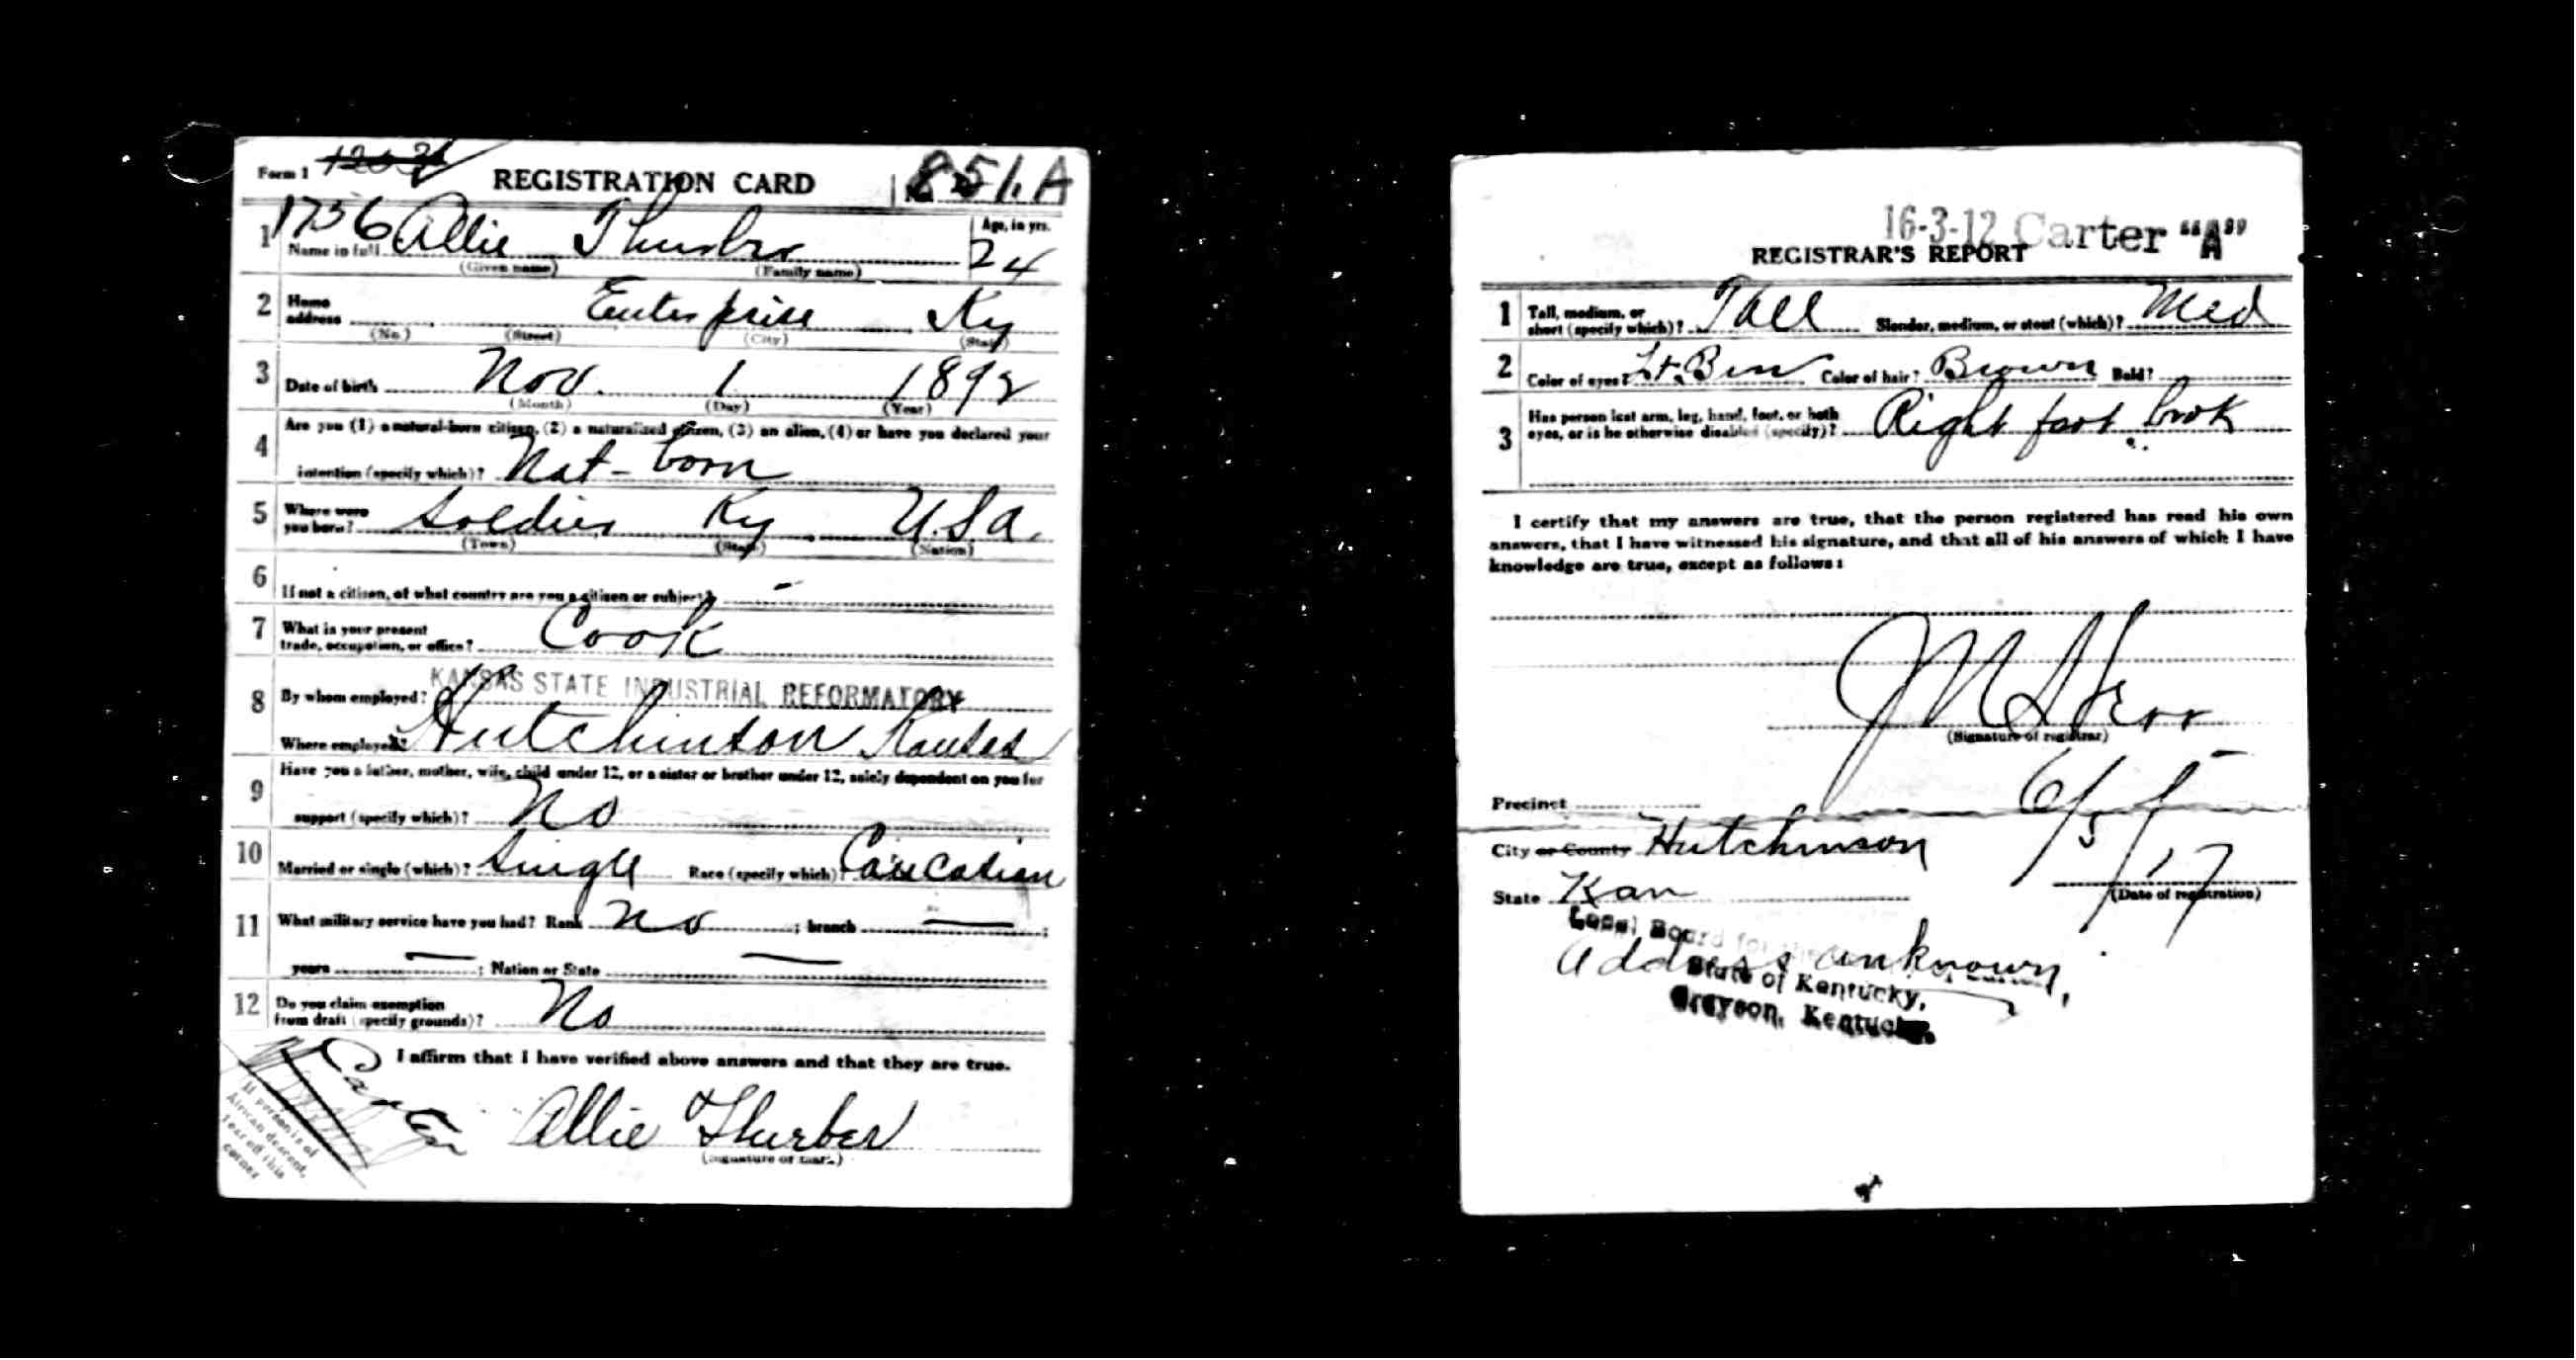 Form 1
REGISTRATION CARD
851 A
1756
1 Name in full Allie Thurber
(Given name) (Family name)
Age, in yrs.
24
2 Home address Enterprise Ky
(No.) (Street) (City) (State)
3 Date of birth Nov. 1 1892
(Month) (Day) (Year)
4 Are you (1) a natural-born citizen, (2) a naturalized citizen, (3) an alien, (4) or have you declared your
intention (specify which)? Nat-born
5 Where were you born? Soldier Ky U.S.A.
(Town) (State) (Nation)
6 If not a citizen, of what country are you a citizen or subject? -
7 What is your present trade, occupation, or office? Cook
KANSAS STATE INDUSTRIAL REFORMATORY
8 By whom employed?
Where employed? Hutchinson Kansas
9 Have you a father, mother, wife, child under 12, or a sister or brother under 12, solely dependent on you for
support (specify which)? No
10 Married or single (which)? Single Race (specify which)? Caucasian
11 What military service have you had? Rank no ; branch — ;
years — ; Nation or State —
12 Do you claim exemption from draft (specify grounds)? No
I affirm that I have verified above answers and that they are true.
Allie Thurber
(Signature or mark)
Carter
If person is of
African descent,
tear off this
corner
16-3-12 Carter "A"
REGISTRAR'S REPORT
1 Tall, medium, or short (specify which)? Tall Slender, medium, or stout (which)? Med
2 Color of eyes? Lt. Brn Color of hair? Brown Bald?
3 Has person lost arm, leg, hand, foot, or both
eyes, or is he otherwise disabled (specify)? Right foot brok
I certify that my answers are true, that the person registered has read his own
answers, that I have witnessed his signature, and that all of his answers of which I have
knowledge are true, except as follows:
(Signature of registrar)
Precinct
City or County Hutchinson
6/5/17
State Kan
(Date of registration)
Local Board for the
Address unknown,
State of Kentucky,
Grayson, Kentucky.